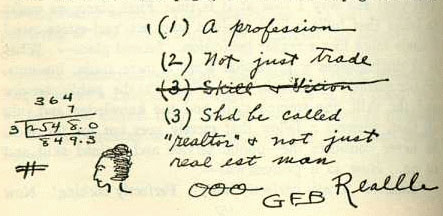 (1) A profession
(2) Not just trade
(3) Skill & Vision
(3) Shd be called
"realtor" & not just
real est man
364
7
3 2548.0
849.3
GFB Reallle